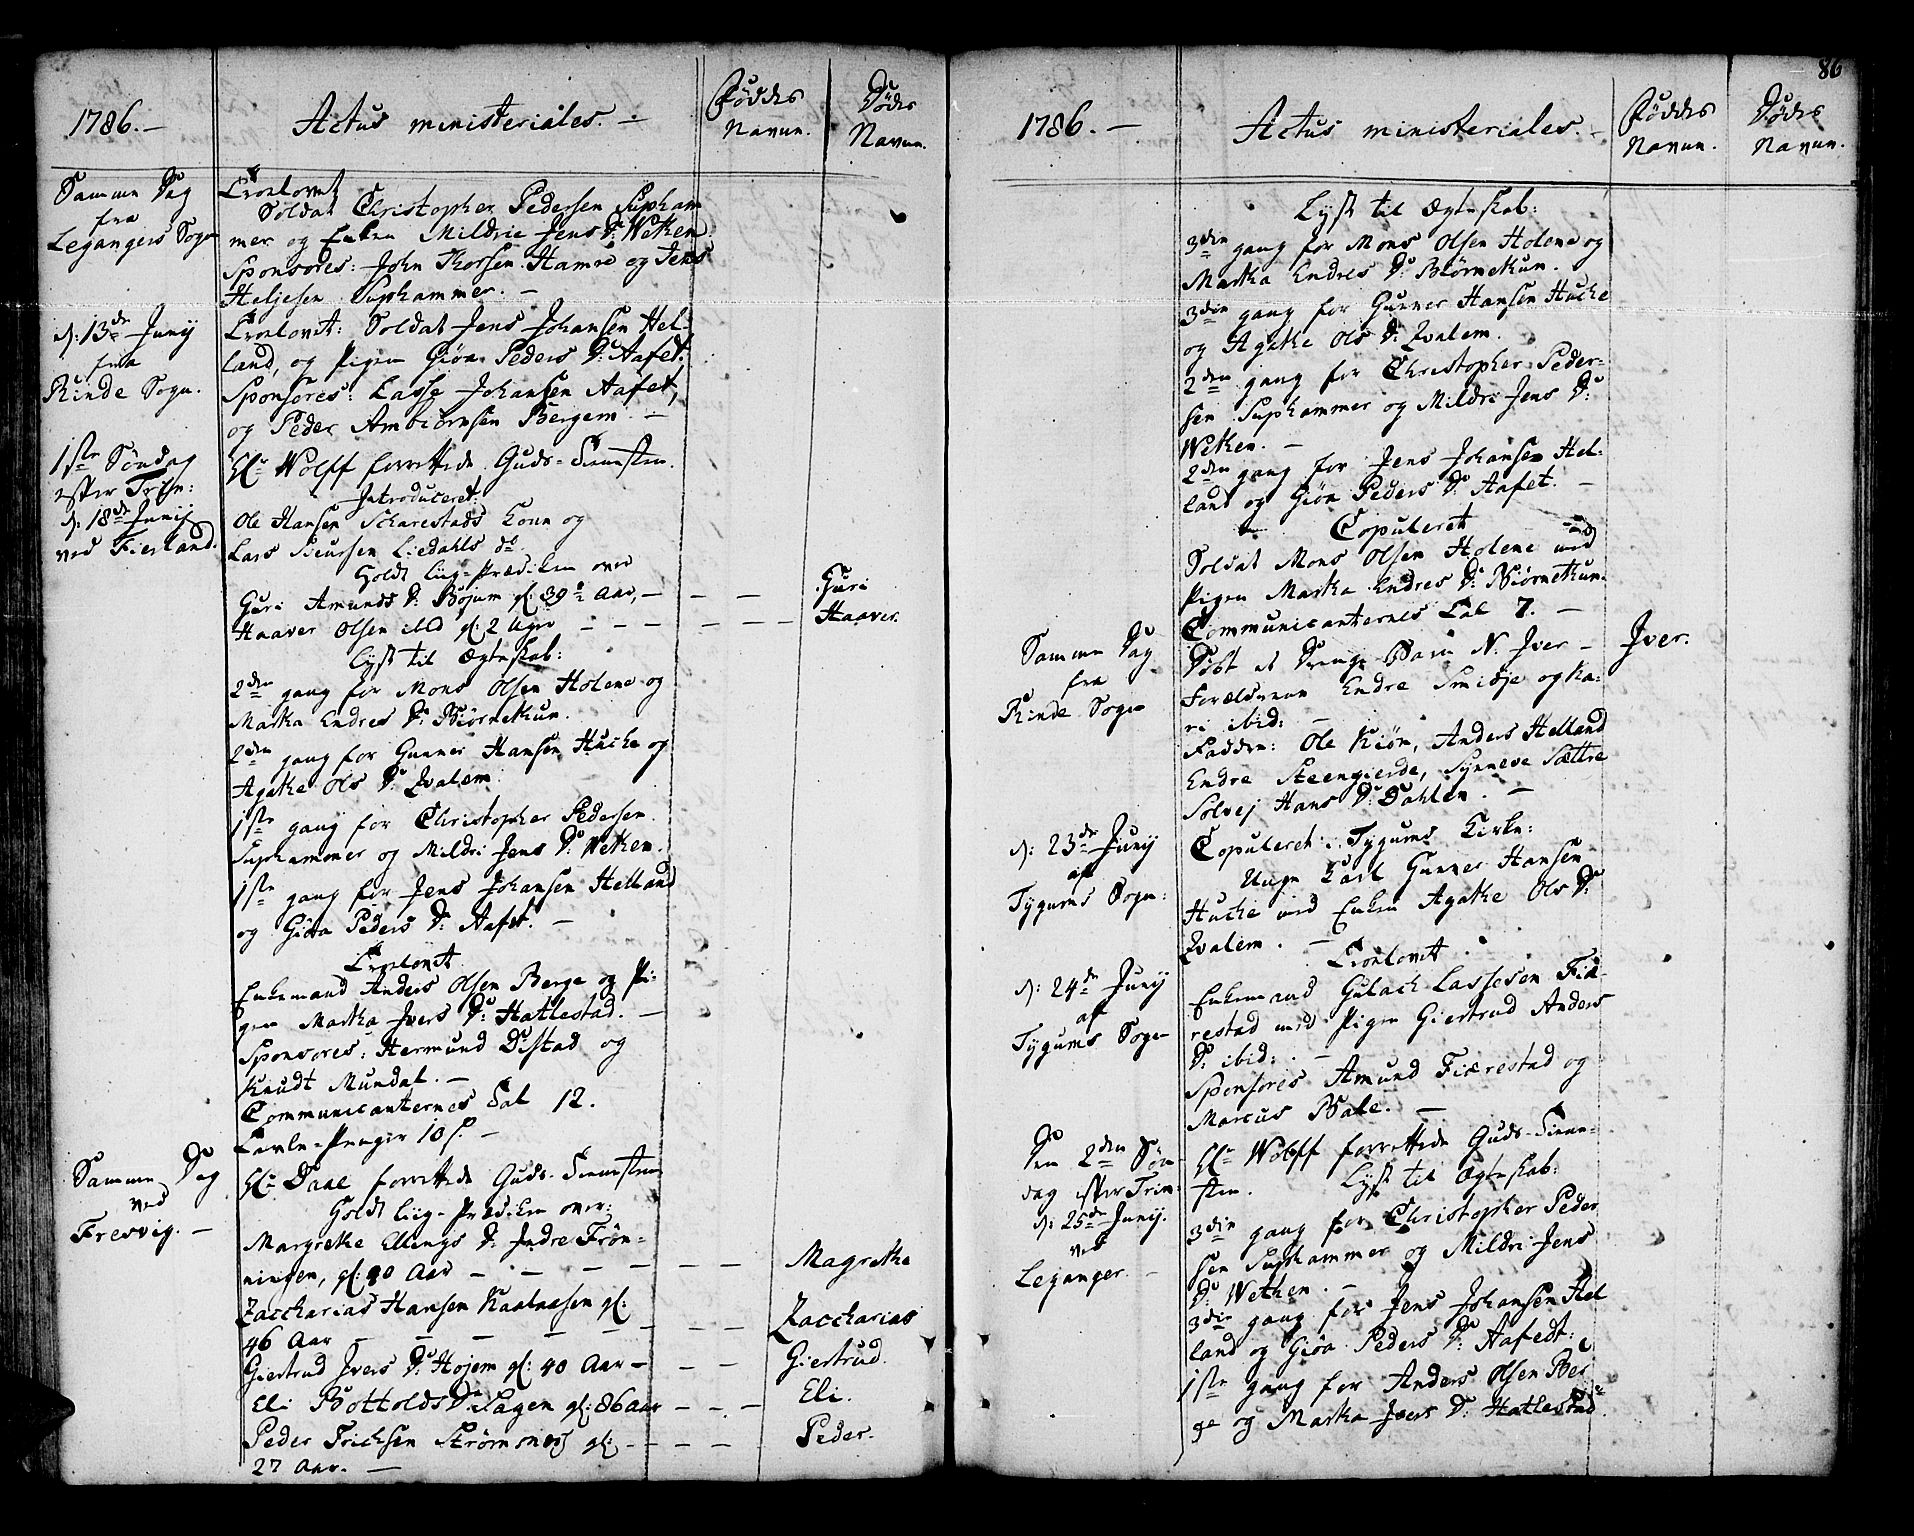 1786.-
Actus ministeriales. -
Føddes
Navne.
Dødes
Navne.
Samme Dag
fra
Legangers Sogn
Troelovet
Soldat Christopher Pedersen Supham
mer og Enken Mildrie Jens D: Wetken
Sponsores: John Thorsen Hamre og Jens
Heljesen Suphammer. -
d: 13de Junij
fra
Rinde Sogn.
Troelovet: Soldat Jens Johansen Hel-
land, og Pigen Giøa Peders D: Aafet.
Sponsores: Lasse Johansen Aafet,
og Peder Ambiørnsen Bergem. -
1ste Søndag
efter Trin:
d: 18de Junij
ved Fierland.
Hr Wolff forrettede Guds-Tienesten.
Introduceret:
Ole Hansen Skarestads Kone og
Lars Siursen Liedahls do
Holdt Liig-Prædiken over
Guri Amunds D: Bojum gl: 39½ Aar, - - -
Guri
Haaver Olsen ibid gl: 2 Uger - - - - -
Haaver.
Lyst til Ægteskab:
2den gang for Mons Olsen Holene og
Martha Endres D: Biørnetun.
2den gang for Gunner Hansen Hucke og
Agathe Ols D: Qvalem
1ste gang for Christopher Pedersen
Suphammer og Mildri Jens D: Wetken.
1ste gang for Jens Johansen Helland
og Giøa Peders D: Aafet. -
Troelovet
Enkemand Anders Olsen Berge og Pi-
gen Martha Ivers D: Hatlestad. -
Sponsores: Hermund Distad og
Knudt Mundal. -
Communicanternes Tal 12.
Tavle-Penger 10 s. -
Samme Dag
ved
Fresvig. -
Hr Daae forrettede Guds-Tienesten
Holdt Liig-Prædiken over:
Margrethe Ellings D: Indre Frøn-
ningen, gl: 90 Aar - - - - -
Magretha
Zaccharias Hansen Kaataasen gl:
46 Aar - - - - - - -
Zaccharias
Giertrud Ivers D: Hojem gl: 40 Aar - - -
Giertrud.
Eli Bottolds D: Sagen gl: 86 Aar - - -
Eli.
Peder Erichsen Strømsnes gl: - - - -
Peder.
27 Aar. -
86
1786. -
Actus ministeriales. -
Føddes
Navne.
Dødes
Navne.
Lyst til Ægteskab:
3die gang for Mons Olsen Holene og
Martha Endres D: Biørnetun.
3die gang for Gunner Hansen Hucke
og Agathe Ols D: Qvalem.
2den gang for Christopher Peder-
sen Suphammer og Mildri Jens D:
Wetken. -
2den gang for Jens Johansen Hel-
land og Giøa Peders D: Aafet. -
Copuleret
Soldat Mons Olsen Holene med
Pigen Martha Endres D: Biørnetun.
Communicanternes Tal 7. -
Samme Dag
fra
Rinde Sogn
Døbt et Drenge Barn N. Iver -
Iver.
Forældrene Endre Smidje og Ka-
ri ibid: -
Faddere: Ole Kiøn, Anders Helland
Endre Steengierde, Synneve Sættre
Solvej Hans D: Dahlen. -
d: 23de Junij
af
Tygums Sogn:
Copuleret i Tygums Kirke:
Unge Karl Gunner Hansen
Hucke med Enken Agathe Ols D:
Qvalem. -
d: 24de Junij
af
Tygums Sogn
Troelovet
Enkemand Gulack Lassesen Fiæ-
restad med Pigen Giertrud Anders
D: ibid: -
Sponsores Amund Fiærestad og
Marcus Bale. -
Den 2den Søn-
dag efter Trin:
d: 25de Junij.
ved
Leganger. -
Hr Wolff forrettede Guds-Tiene-
sten. Lyst til Ægteskab:
3die gang for Christopher Peder
sen Suphammer og Mildri Jens
D: Wetken. -
3die gang for Jens Johansen Hel
land og Giøa Peders D: Aafedt:
1ste gang for Anders Olsen Ber
ge og Martha Ivers D: Hatlestad.